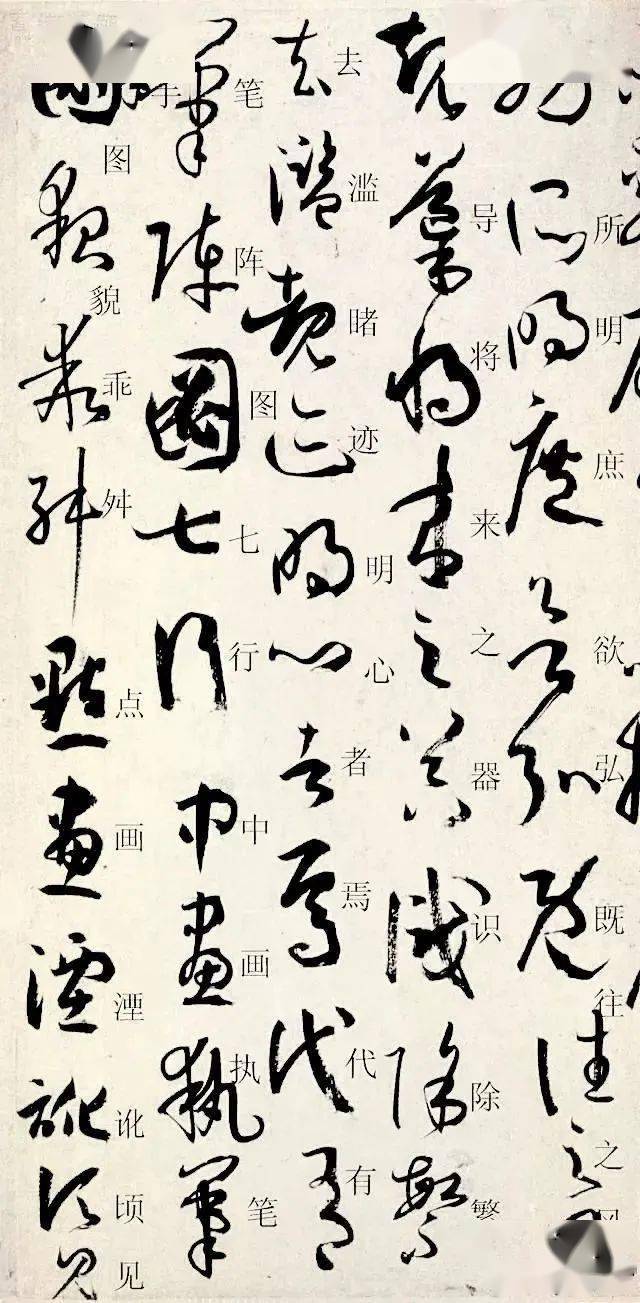 所明庶欲弘既往之风
规导将来之器识除繁
去滥睹迹明心者焉代有
笔阵图七行中画执笔
手图貌乖舛点画湮讹顷见